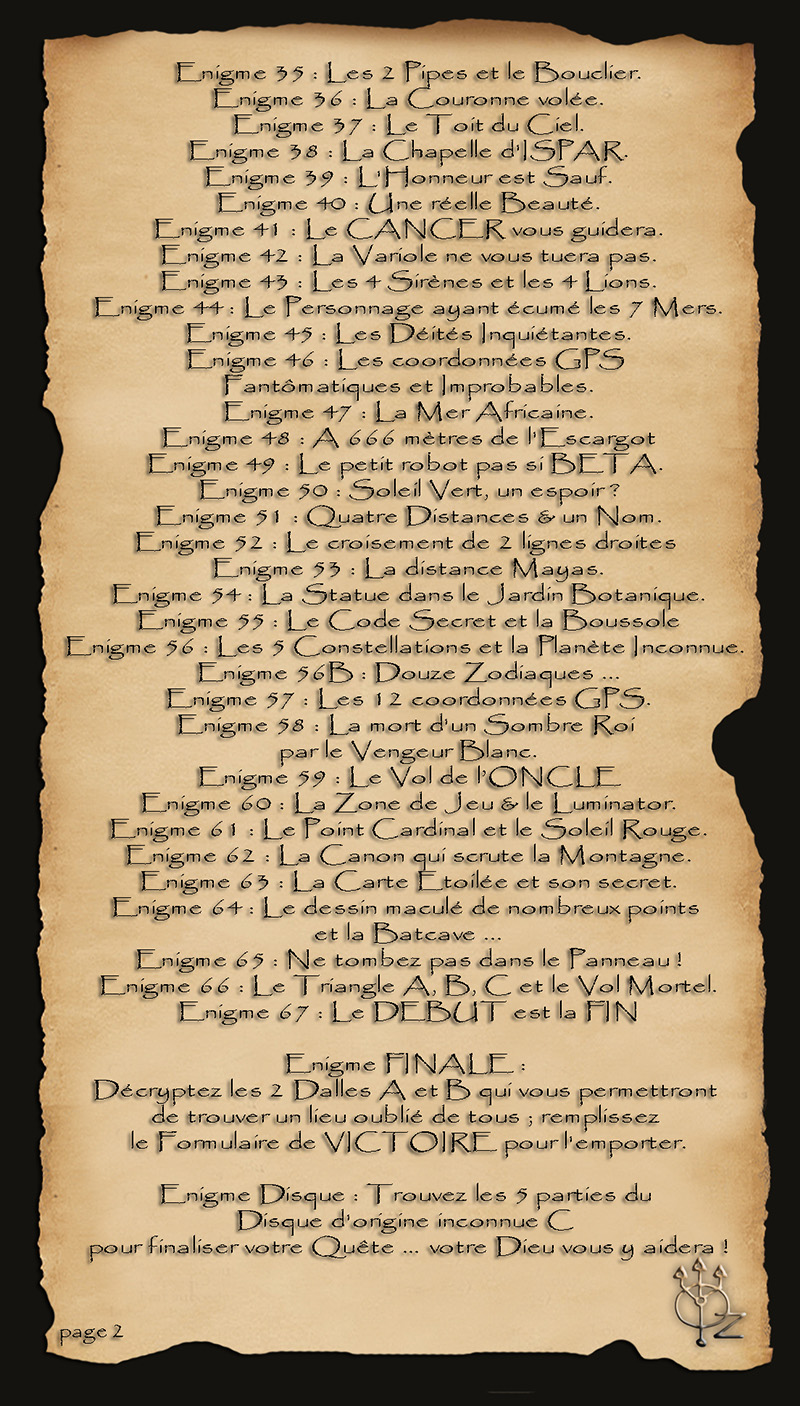 Enigme 35 : Les 2 Pipes et le Bouclier.
Enigme 36 : La Couronne volée.
Enigme 37 : Le Toit du Ciel.
Enigme 38 : La Chapelle d'ISPAR.
Enigme 39 : L'Honneur est Sauf.
Enigme 40 : Une réelle Beauté.
Enigme 41 : Le CANCER vous guidera.
Enigme 42 : La Variole ne vous tuera pas.
Enigme 43 : Les 4 Sirènes et les 4 Lions.
Enigme 44 : Le Personnage ayant écumé les 7 Mers.
Enigme 45 : Les Déités Inquiétantes.
Enigme 46 : Les coordonnées GPS
Fantômatiques et Improbables.
Enigme 47 : La Mer Africaine.
Enigme 48 : A 666 mètres de l'Escargot
Enigme 49 : Le petit robot pas si BETA.
Enigme 50 : Soleil Vert, un espoir ?
Enigme 51 : Quatre Distances & un Nom.
Enigme 52 : Le croisement de 2 lignes droites
Enigme 53 : La distance Mayas.
Enigme 54 : La Statue dans le Jardin Botanique.
Enigme 55 : Le Code Secret et la Boussole
Enigme 56 : Les 5 Constellations et la Planète Inconnue.
Enigme 56B : Douze Zodiaques ...
Enigme 57 : Les 12 coordonnées GPS.
Enigme 58 : La mort d'un Sombre Roi
par le Vengeur Blanc.
Enigme 59 : Le Vol de l'ONCLE
Enigme 60 : La Zone de Jeu & le Luminator.
Enigme 61 : Le Point Cardinal et le Soleil Rouge.
Enigme 62 : La Canon qui scrute la Montagne.
Enigme 63 : La Carte Etoilée et son secret.
Enigme 64 : Le dessin maculé de nombreux points
et la Batcave ...
Enigme 65 : Ne tombez pas dans le Panneau !
Enigme 66 : Le Triangle A, B, C et le Vol Mortel.
Enigme 67 : Le DEBUT est la FIN
Enigme FINALE :
Décryptez les 2 Dalles A et B qui vous permettront
de trouver un lieu oublié de tous ; remplissez
le Formulaire de VICTOIRE pour l'emporter.
Enigme Disque : Trouvez les 5 parties du
Disque d'origine inconnue C
pour finaliser votre Quête ... votre Dieu vous y aidera !
page 2